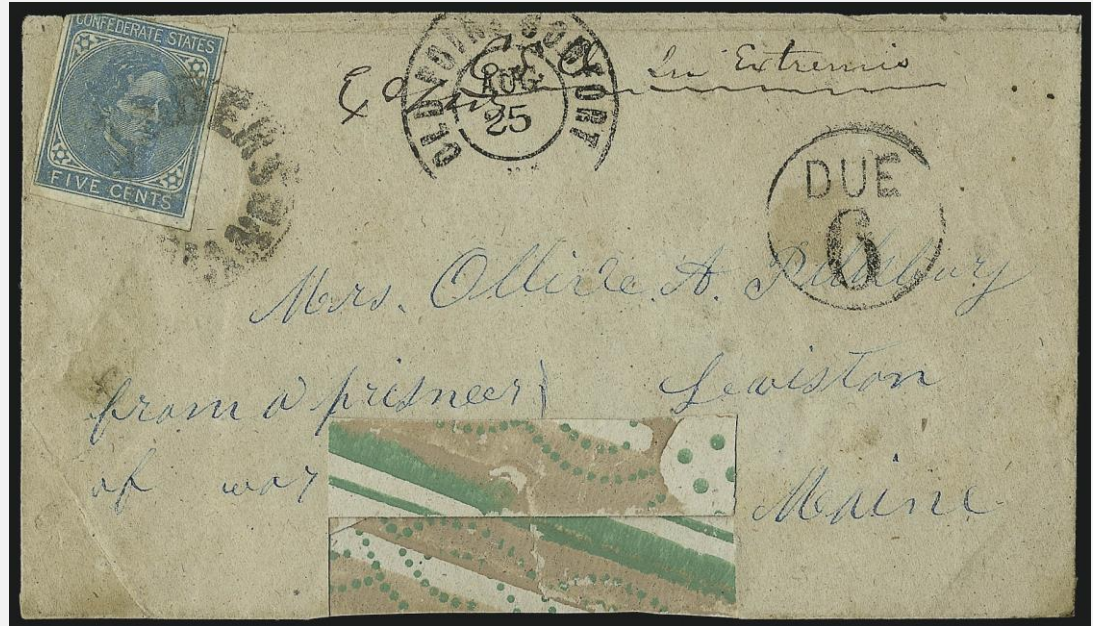 CONFEDERATE STATES
FIVE CENTS
OLD POINT COMFORT
AUG
25
In Extremis
DUE
6
Mrs. Ollivie A. Pillsbury
from a prisneer
Lewiston
of war
Maine